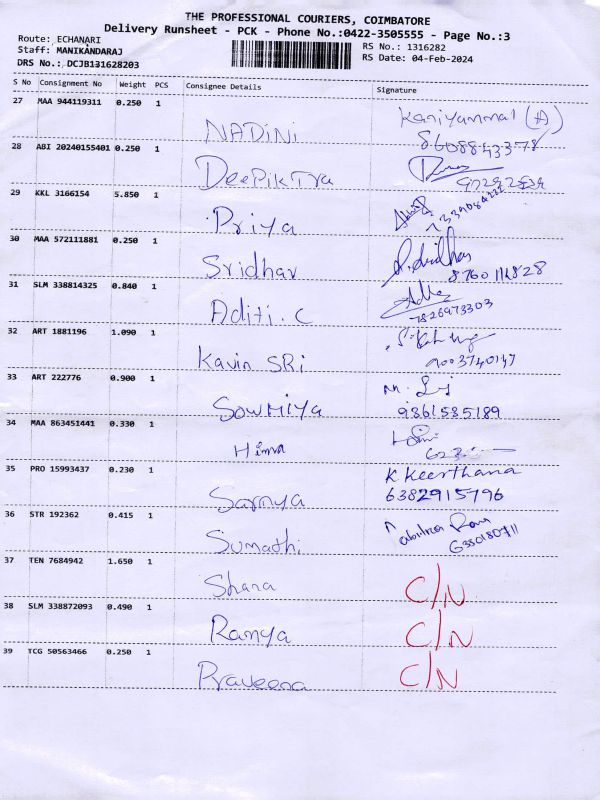 THE PROFESSIONAL COURIERS, COIMBATORE
Delivery Runsheet - PCK - Phone No.:0422-3505555 - Page No.:3
Route: ECHANARI
RS No.: 1316282
Staff: MANIKANDARAJ
RS Date: 04-Feb-2024
DRS No.: DCJB131628203
S No Consignment No Weight PCS Consignee Details Signature
27 MAA 944119311 0.250 1
NADiNi Kaniyammal (A)
8608843378
28 ABI 20240155401 0.250 1
DeePikTra
29 KKL 3166154 5.850 1
Priya
30 MAA 572111881 0.250 1
Sridhar
31 SLM 338814325 0.840 1
Aditi. C
7826973303
32 ART 1881196 1.090 1
Kavin SRi
9003740147
33 ART 222776 0.900 1
Sowmiya
9361535189
34 MAA 863451441 0.330 1
Hima
35 PRO 15993437 0.230 1
Sarnya K Keerthana
6382915796
36 STR 192362 0.415 1
Sumathi
37 TEN 7684942 1.650 1
Shana C/N
38 SLM 338872093 0.490 1
Ranya C/N
39 TCG 50563466 0.250 1
Praveena C/N